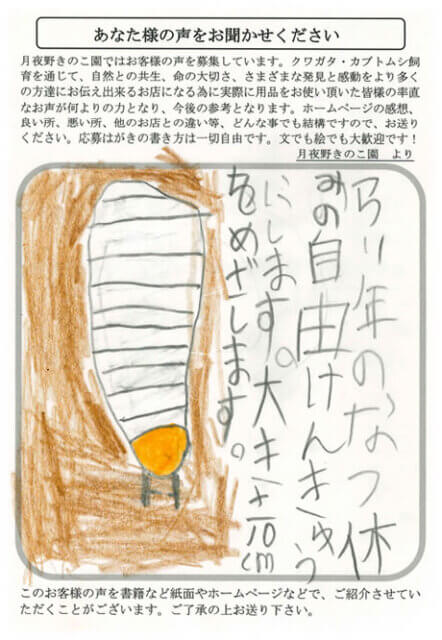 あなた様の声をお聞かせください
月夜野きのこ園ではお客様の声を募集しています。クワガタ・カブトムシ飼
育を通じて、自然との共生、命の大切さ、さまざまな発見と感動をより多く
の方達にお伝え出来るお店になる為に実際に用品をお使い頂いた皆様の率直
なお声が何よりの力となり、今後の参考となります。ホームページの感想、
良い所、悪い所、他のお店との違い等、どんな事でも結構ですので、お送り
ください。応募はがきの書き方は一切自由です。文でも絵でも大歓迎です！
月夜野きのこ園　より
年のなつ休
みの自由けんきゅう
にします。大きさ10cm
をめざします。
このお客様の声を書籍など紙面やホームページなどで、ご紹介させてい
ただくことがございます。ご了承の上お送り下さい。